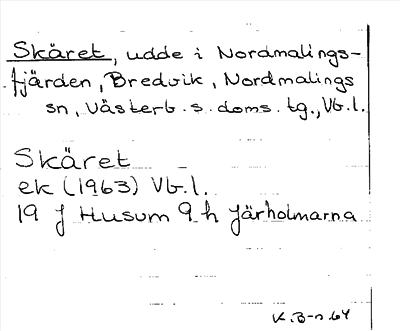 Skäret, udde i Nordmalings-
fjärden, Bredvik, Nordmalings
sn, Västerb. s. doms. tg., Vb.l.
Skäret
ek (1963) Vb.l.
19 J Husum 9 h Järholmarna
K.B-n 64